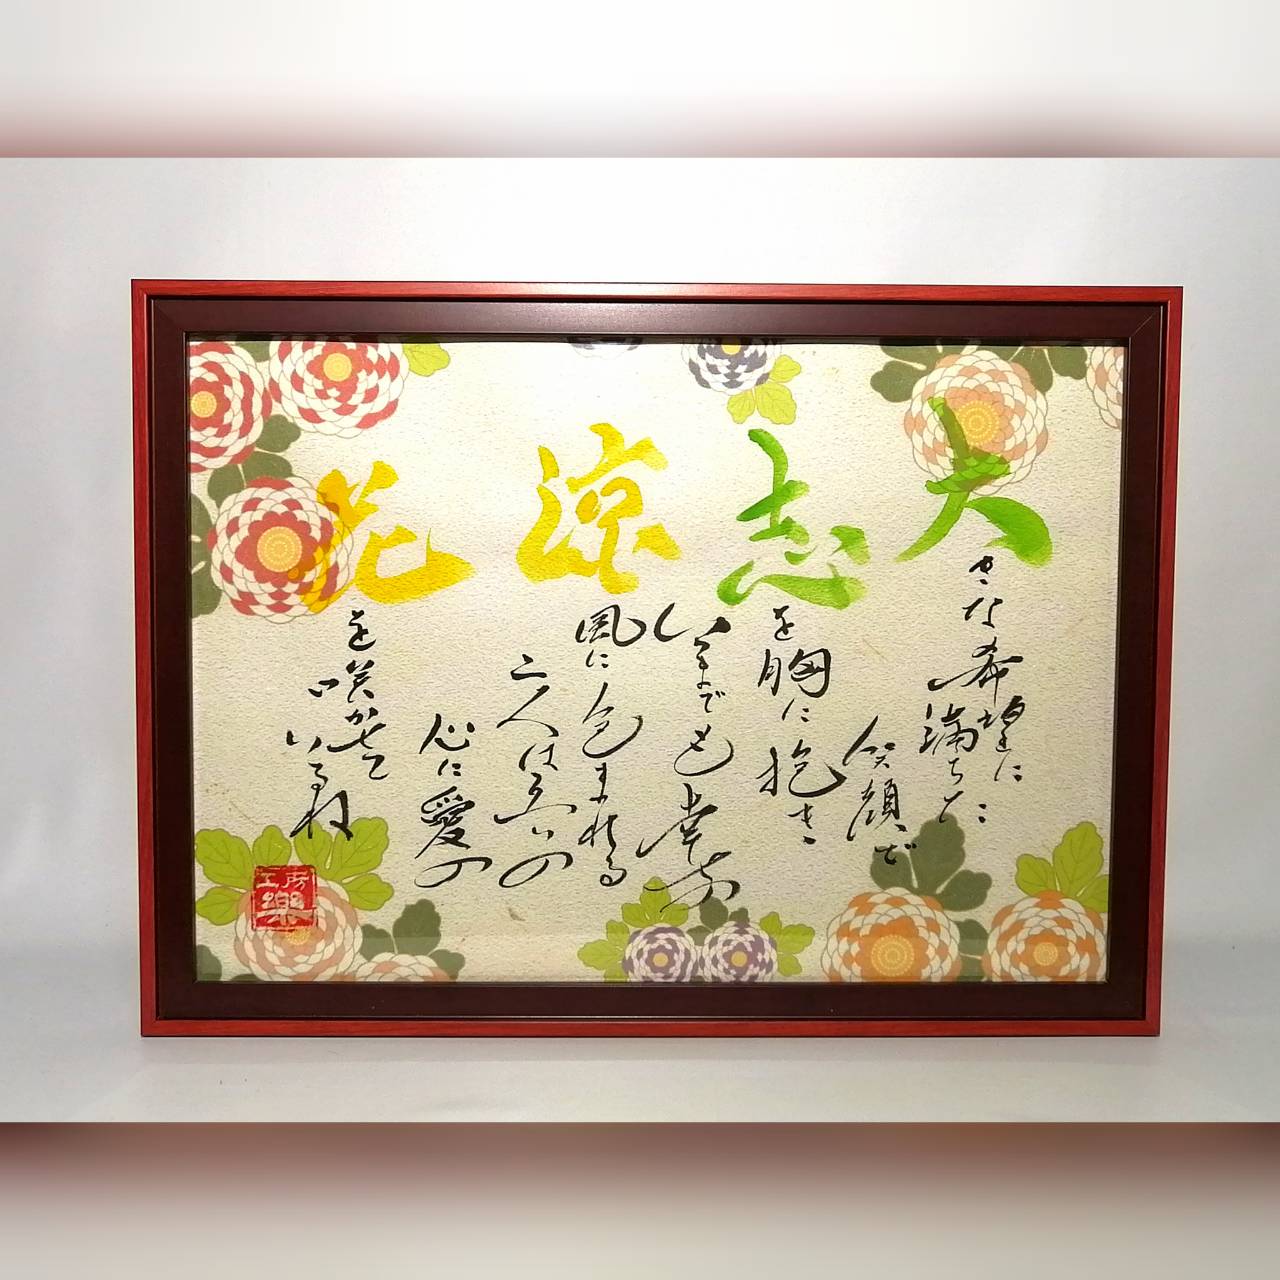 大きな希望に
満ちた
笑顔で
志を胸に抱き
いつまでも幸せ
涼風に包まれる
二人は互いの
心に愛の
花を咲かせて
いるね
工房
樂